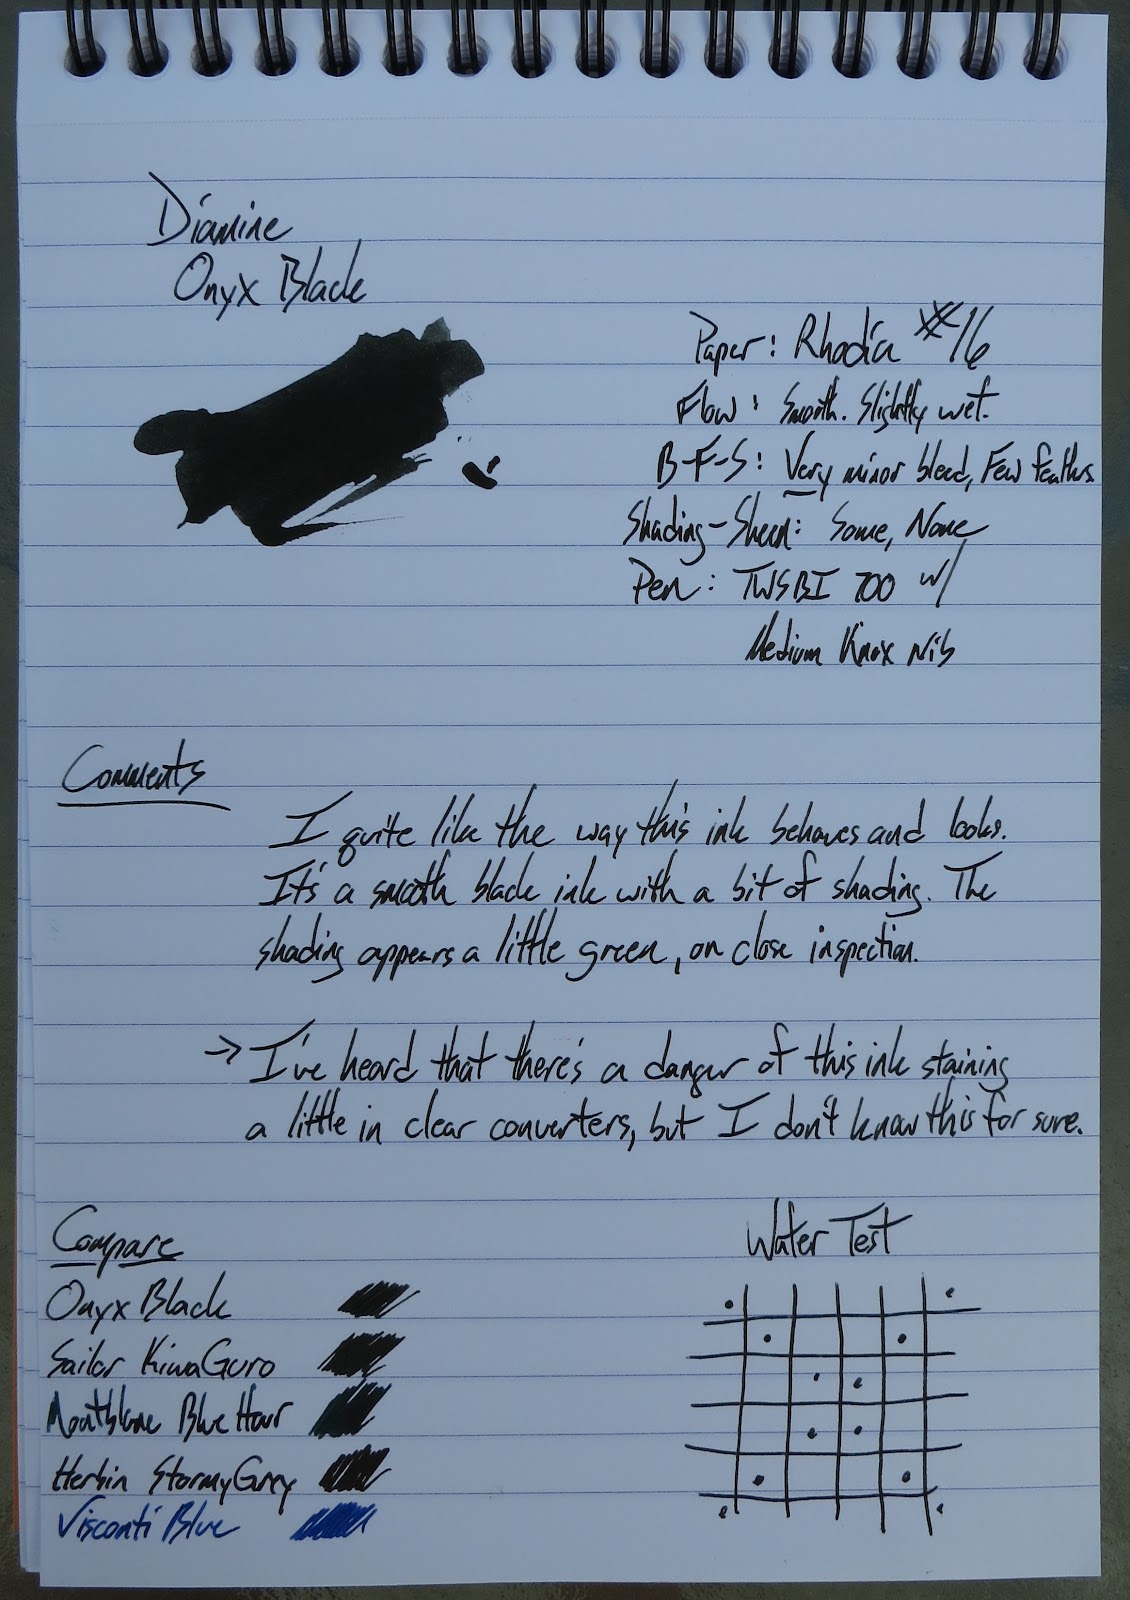 Diamine
Onyx Black
Paper: Rhodia #16
Flow: Smooth. Slightly wet.
B-F-S: Very minor bleed, Few feathers.
Shading-Sheen: Some, None
Pen: TWSBI 700 w/
Medium Knox Nib
Comments
I quite like the way this ink behaves and looks.
It's a smooth black ink with a bit of shading. The
shading appears a little green, on close inspection.
→ I've heard that there's a danger of this ink staining
a little in clear converters, but I don't know this for sure.
Compare
Onyx Black
Sailor KiwaGuro
Montblanc Blue Hour
Herbin Stormy Grey
Visconti Blue
Water Test